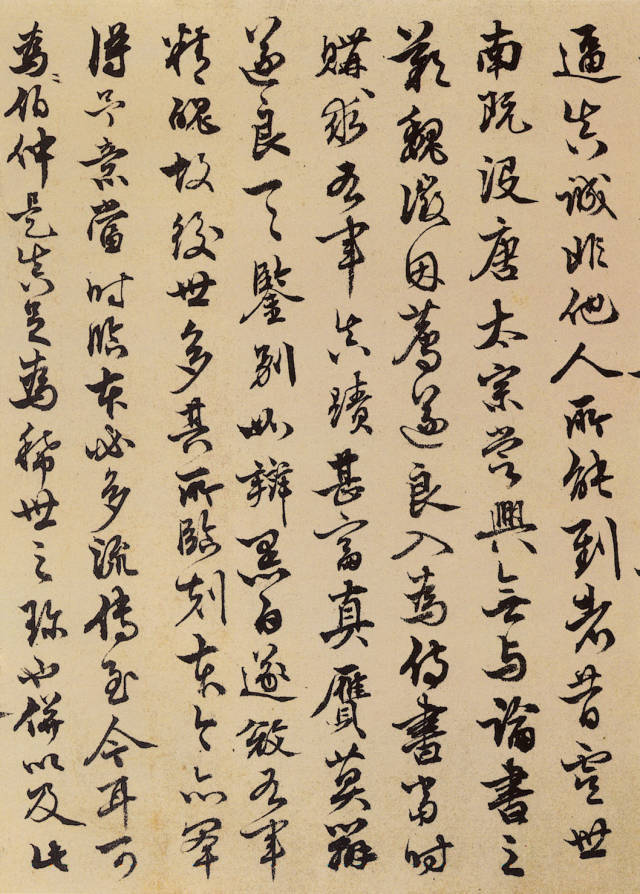 逼真誠非他人所能到者昔虞世
南既没唐太宗嘗興無与論書之
歎魏徵因薦遂良入為侍書當時
購求右軍真蹟甚富真贋莫辨
遂良一一鑒別如辯黑白遂右軍
精魄故後世多其所臨刻本今亦罕
得意當時臨本必多流傳至今耳可
為之伯仲是真足為稀世之珍也併以及此